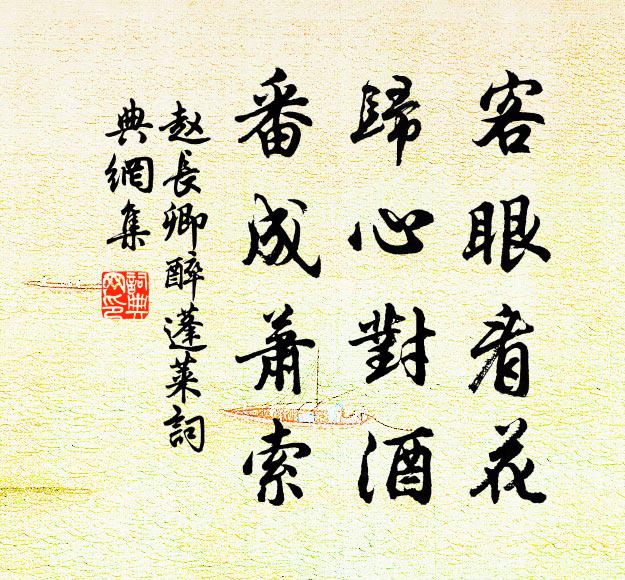 客眼看花
歸心對酒
番成蕭索
赵長卿醉蓬莱詞
典網集
詞典網印